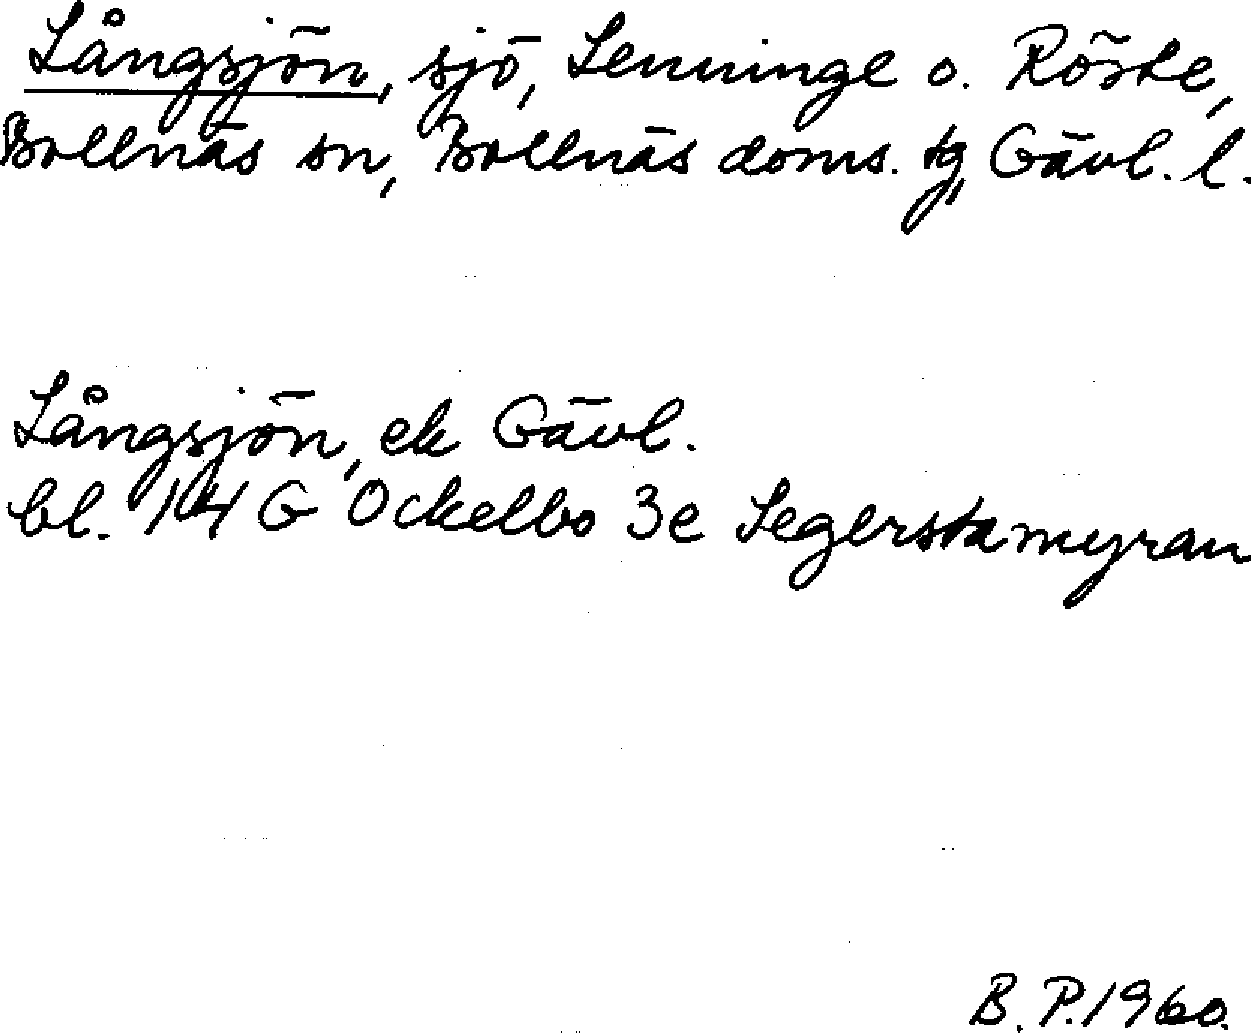 Långsjön, sjö, Lenninge o. Röste,
Bollnäs sn, Bollnäs doms. tg, Gävl. l.
Långsjön, ek Gävl.
bl. 14 G Ockelbo 3e Segerstamyran
B. P. 1960.